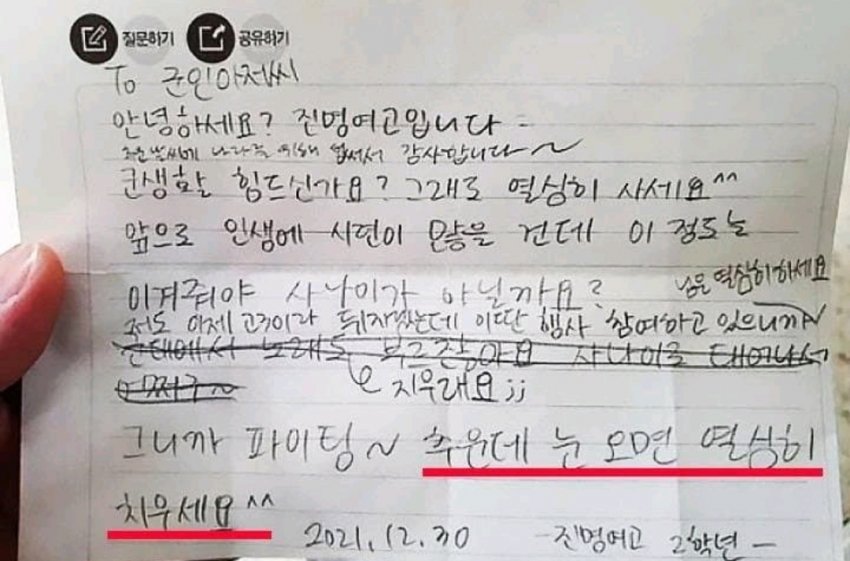 질문하기 공유하기
To 군인아저씨
안녕하세요? 진명여고입니다
추운 날씨에 나라를 위해 힘써서 감사합니다~
군생활 힘드신가요? 그래도 열심히 사세요^^
앞으로 인생에 시련이 많을 건데 이 정도는
이겨줘야 사나이가 아닐까요?
님은 열심히하세요
저도 이제 고3이라 뒤지겠는데 이딴 행사 참여하고 있으니까~
군대에서 노래도 부르잖아요 사나이로 태어나서
어쩌구~
지우래요;;
그니까 파이팅~ 추운데 눈 오면 열심히
치우세요^^
2021.12.30 -진명여고 2학년-